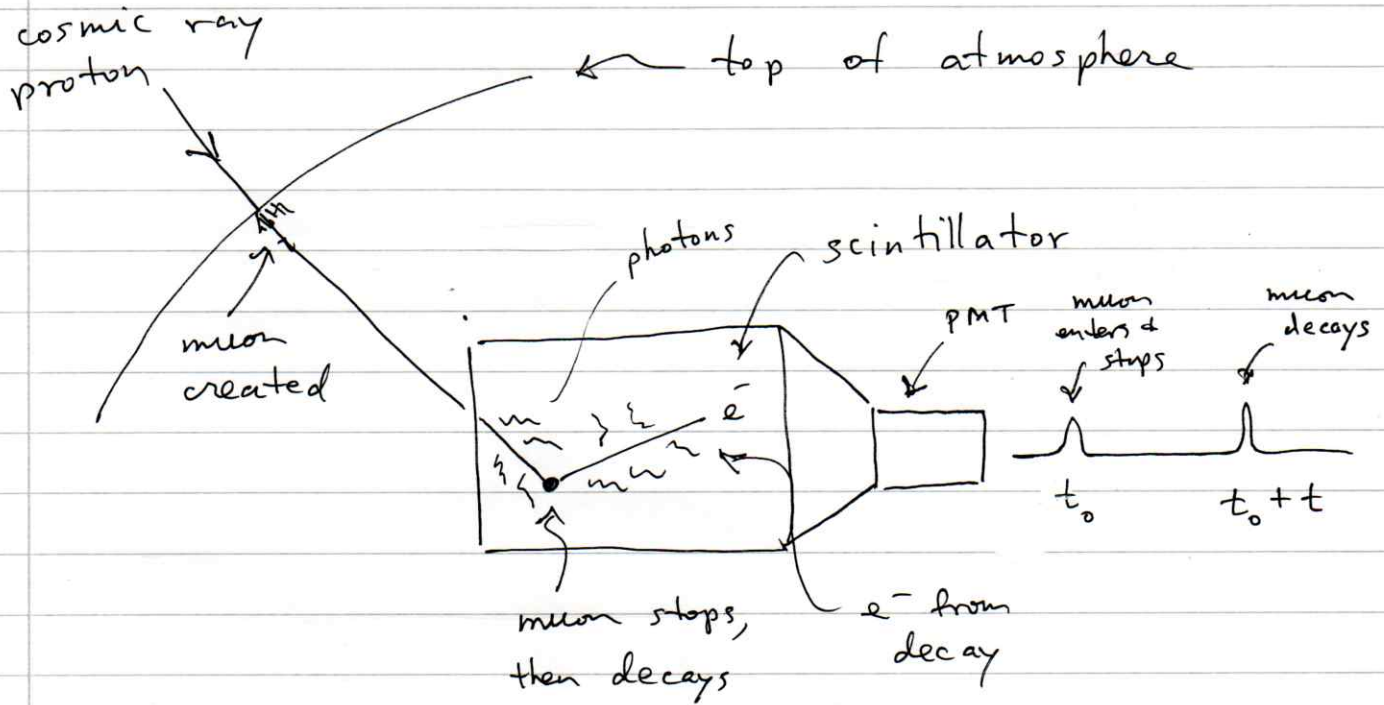 cosmic ray
proton
top of atmosphere
muon
created
photons
scintillator
PMT
muon
enters &
stops
muon
decays
e⁻
t₀
t₀ + t
muon stops,
then decays
e⁻ from
decay